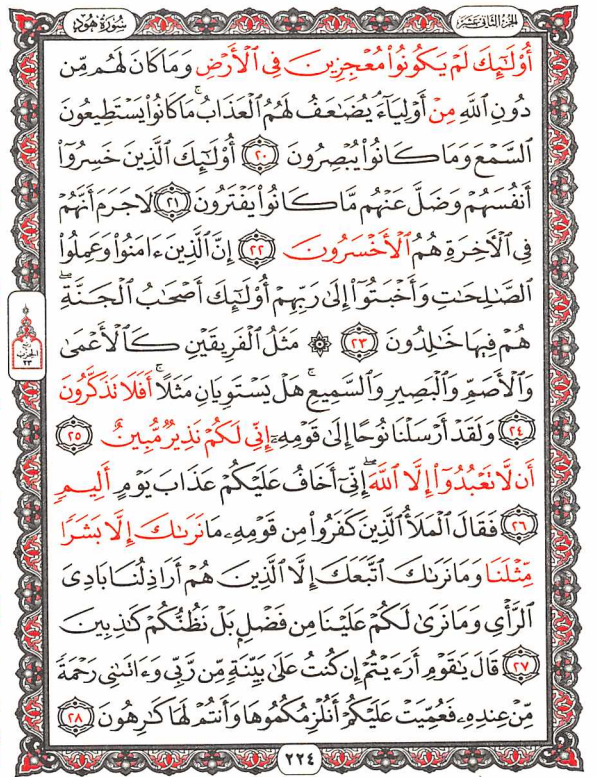 سُورَةُ هُودٍ
الجُزءُ الثَّانِي عَشَرَ
أُوْلَٰٓئِكَ لَمۡ يَكُونُواْ مُعۡجِزِينَ فِي ٱلۡأَرۡضِ وَمَا كَانَ لَهُم مِّن
دُونِ ٱللَّهِ مِنۡ أَوۡلِيَآءَۘ يُضَٰعَفُ لَهُمُ ٱلۡعَذَابُۚ مَا كَانُواْ يَسۡتَطِيعُونَ
ٱلسَّمۡعَ وَمَا كَانُواْ يُبۡصِرُونَ ٢٠ أُوْلَٰٓئِكَ ٱلَّذِينَ خَسِرُوٓاْ
أَنفُسَهُمۡ وَضَلَّ عَنۡهُم مَّا كَانُواْ يَفۡتَرُونَ ٢١ لَا جَرَمَ أَنَّهُمۡ
فِي ٱلۡأٓخِرَةِ هُمُ ٱلۡأَخۡسَرُونَ ٢٢ إِنَّ ٱلَّذِينَ ءَامَنُواْ وَعَمِلُواْ
ٱلصَّٰلِحَٰتِ وَأَخۡبَتُوٓاْ إِلَىٰ رَبِّهِمۡ أُوْلَٰٓئِكَ أَصۡحَٰبُ ٱلۡجَنَّةِۖ
هُمۡ فِيهَا خَٰلِدُونَ ٢٣ ۞ مَثَلُ ٱلۡفَرِيقَيۡنِ كَٱلۡأَعۡمَىٰ
وَٱلۡأَصَمِّ وَٱلۡبَصِيرِ وَٱلسَّمِيعِۚ هَلۡ يَسۡتَوِيَانِ مَثَلًاۚ أَفَلَا تَذَكَّرُونَ
٢٤ وَلَقَدۡ أَرۡسَلۡنَا نُوحًا إِلَىٰ قَوۡمِهِۦٓ إِنِّي لَكُمۡ نَذِيرٞ مُّبِينٌ ٢٥
أَن لَّا تَعۡبُدُوٓاْ إِلَّا ٱللَّهَۖ إِنِّيٓ أَخَافُ عَلَيۡكُمۡ عَذَابَ يَوۡمٍ أَلِيمٖ
٢٦ فَقَالَ ٱلۡمَلَأُ ٱلَّذِينَ كَفَرُواْ مِن قَوۡمِهِۦ مَا نَرَىٰكَ إِلَّا بَشَرٗا
مِّثۡلَنَا وَمَا نَرَىٰكَ ٱتَّبَعَكَ إِلَّا ٱلَّذِينَ هُمۡ أَرَاذِلُنَا بَادِيَ
ٱلرَّأۡيِ وَمَا نَرَىٰ لَكُمۡ عَلَيۡنَا مِن فَضۡلِۭ بَلۡ نَظُنُّكُمۡ كَٰذِبِينَ
٢٧ قَالَ يَٰقَوۡمِ أَرَءَيۡتُمۡ إِن كُنتُ عَلَىٰ بَيِّنَةٖ مِّن رَّبِّي وَءَاتَىٰنِي رَحۡمَةٗ
مِّنۡ عِندِهِۦ فَعُمِّيَتۡ عَلَيۡكُمۡ أَنُلۡزِمُكُمُوهَا وَأَنتُمۡ لَهَا كَٰرِهُونَ ٢٨
الحزب
٢٣
٢٢٤